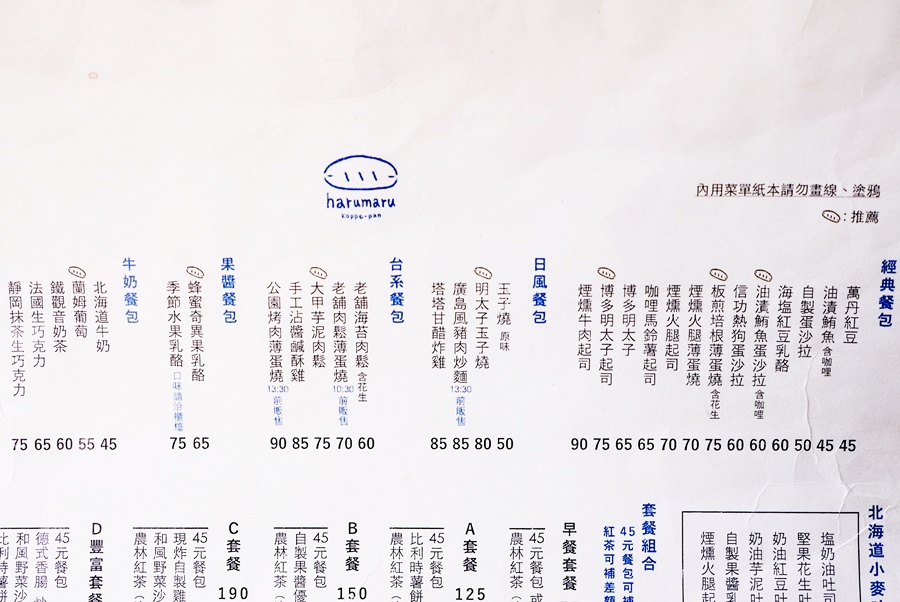 harumaru
koppe-pan
內用菜單紙本請勿畫線、塗鴉
:推薦
經典餐包
萬丹紅豆 45
油漬鮪魚 含咖哩 45
自製蛋沙拉 50
海塩紅豆乳酪 60
油漬鮪魚蛋沙拉 含咖哩 60
信功熱狗蛋沙拉 60
板煎培根薄蛋燒 含花生 75
煙燻火腿薄蛋燒 70
煙燻火腿起司 70
咖哩馬鈴薯起司 65
博多明太子 65
博多明太子起司 75
煙燻牛肉起司 90
日風餐包
玉子燒 原味 50
明太子玉子燒 80
廣島風豬肉炒麵 13:30前販售 85
塔塔甘醋炸雞 85
台系餐包
老舖海苔肉鬆 含花生 60
老舖肉鬆薄蛋燒 10:30前販售 70
大甲芋泥肉鬆 75
手工沾醬鹹酥雞 85
公園烤肉薄蛋燒 13:30前販售 90
果醬餐包
蜂蜜奇異果乳酪 65
季節水果乳酪 口味請洽櫃檯 75
牛奶餐包
北海道牛奶 45
蘭姆葡萄 55
鐵觀音奶茶 60
法國生巧克力 65
靜岡抹茶生巧克力 75
北海道小麥
塩奶油吐司
堅果花生吐
奶油紅豆吐
奶油芋泥吐
自製果醬乳
煙燻火腿起
套餐組合
45元餐包可補
紅茶可補差額
早餐套餐
45元餐包 或
A 套餐 125
45元餐包
比利時薯餅
農林紅茶(
B 套餐 150
45元餐包
自製果醬優
農林紅茶(
C 套餐 190
45元餐包
現炸自製雞
和風野菜沙
農林紅茶(
D 豐富套餐
45元餐包
德式香腸
和風野菜沙
比利時薯餅